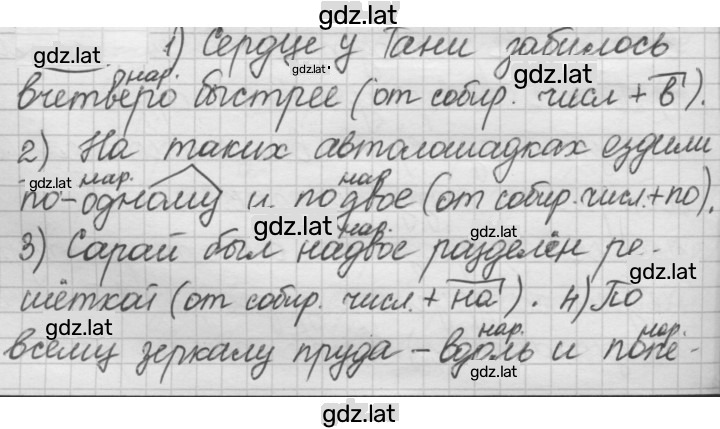 gdz.lat
1) Сердце у Тани забилось
gdz.lat
gdz.lat
gdz.lat
нар.
вчетверо быстрее (от собир. числ + в).
2) На таких автолошадках ездили
gdz.lat нар. нар
по-одному и по двое (от собир. числ.+по).
gdz.lat
gdz.lat нар.
3) Сарай был надвое разделён ре-
gdz.lat
шёткой (от собир. числ. + на). 4) По
gdz.lat
нар. нар.
всему зеркалу пруда – вдоль и попе-
gdz.lat
gdz.lat